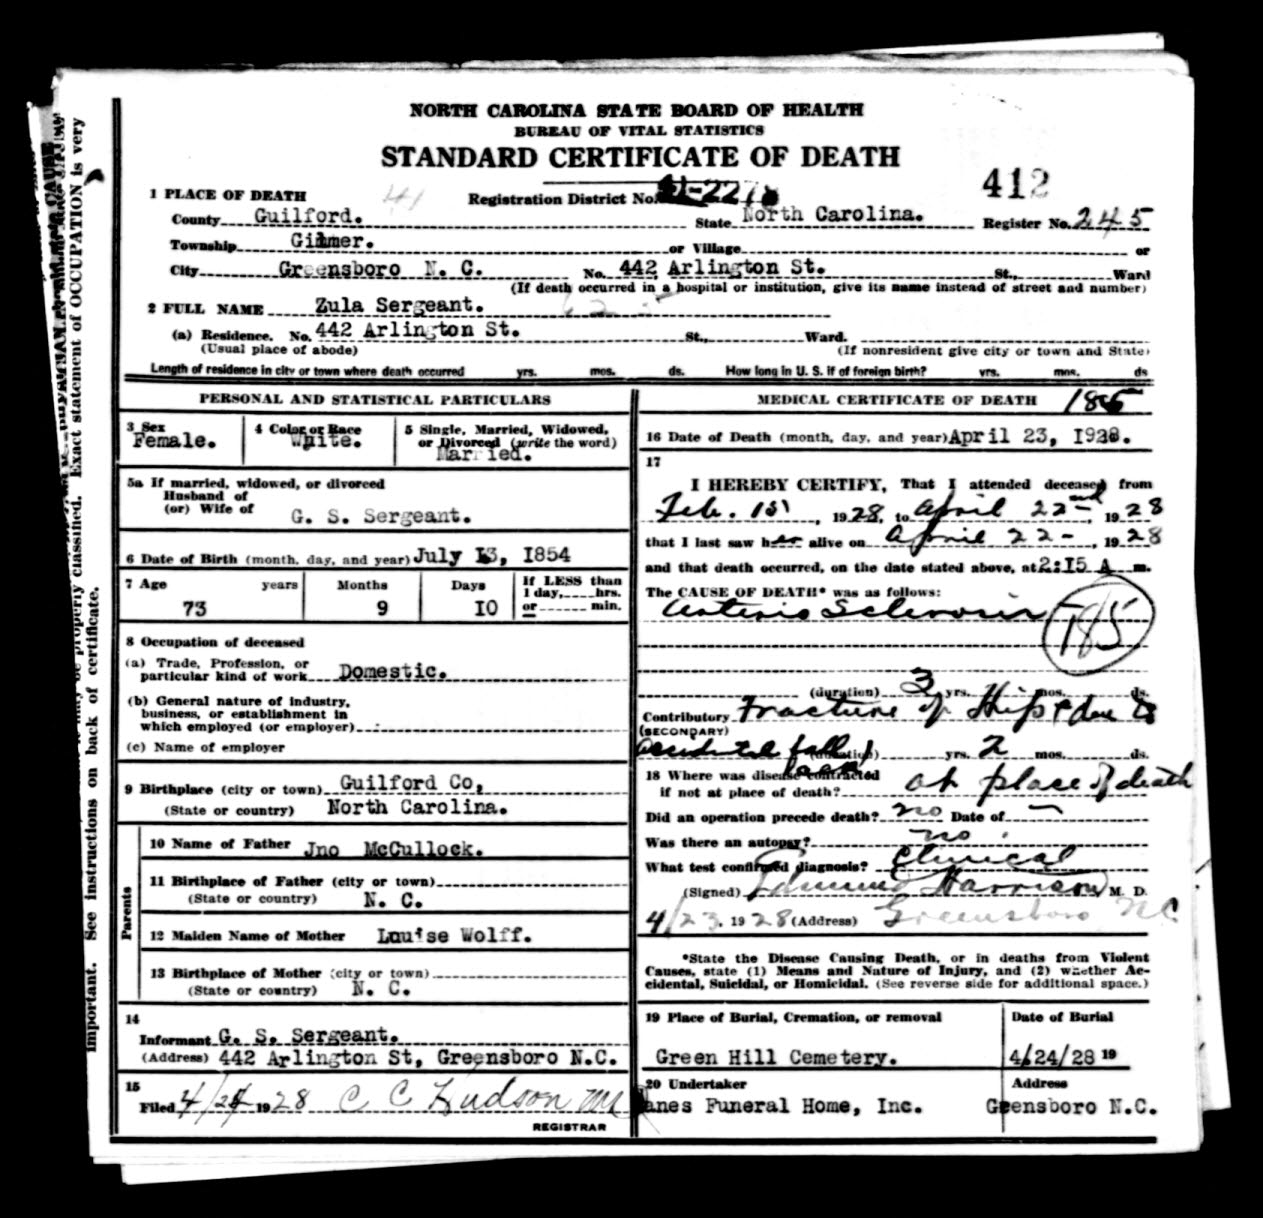 NORTH CAROLINA STATE BOARD OF HEALTH
BUREAU OF VITAL STATISTICS
STANDARD CERTIFICATE OF DEATH
412
1 PLACE OF DEATH 41 Registration District No. 41-2278
County Guilford. State North Carolina. Register No. 245
Township Gilmer. or Village or
City Greensboro N. C. No. 442 Arlington St. St., Ward
(If death occurred in a hospital or institution, give its name instead of street and number)
2 FULL NAME Zula Sergeant.
(a) Residence. No. 442 Arlington St. St., Ward.
(Usual place of abode) (If nonresident give city or town and State)
Length of residence in city or town where death occurred yrs. mos. ds. How long in U. S. if of foreign birth? yrs. mos. ds
PERSONAL AND STATISTICAL PARTICULARS
3 Sex 4 Color or Race 5 Single, Married, Widowed,
or Divorced (write the word)
Female. White. Married.
5a If married, widowed, or divorced
Husband of
(or) Wife of G. S. Sergeant.
6 Date of Birth (month, day, and year) July 13, 1854
7 Age years Months Days If LESS than
1 day, hrs.
73 9 10 or min.
8 Occupation of deceased
(a) Trade, Profession, or
particular kind of work Domestic.
(b) General nature of industry,
business, or establishment in
which employed (or employer)
(c) Name of employer
9 Birthplace (city or town) Guilford Co,
(State or country) North Carolina.
Parents
10 Name of Father Jno McCullock.
11 Birthplace of Father (city or town)
(State or country) N. C.
12 Maiden Name of Mother Louise Wolff.
13 Birthplace of Mother (city or town)
(State or country) N. C.
14
Informant G. S. Sergeant.
(Address) 442 Arlington St, Greensboro N.C.
15
Filed 4/24 1928 C C Hudson MD
REGISTRAR
MEDICAL CERTIFICATE OF DEATH 185
16 Date of Death (month, day, and year) April 23, 1928.
17
I HEREBY CERTIFY, That I attended deceased from
Feb. 1st, 1928, to April 22nd, 1928
that I last saw her alive on April 22-, 1928
and that death occurred, on the date stated above, at 2:15 A m.
The CAUSE OF DEATH* was as follows:
Arterio Sclerosis 185
(duration) 3 yrs. mos. ds.
Contributory Fracture of Hip due to
(SECONDARY)
accidental fall (duration) yrs. 2 mos. ds.
18 Where was disease contracted
if not at place of death? at place of death
Did an operation precede death? no Date of
Was there an autopsy? no.
What test confirmed diagnosis? Clinical
(Signed) Edmund Harrison M. D.
4/23, 1928 (Address) Greensboro NC
*State the Disease Causing Death, or in deaths from Violent
Causes, state (1) Means and Nature of Injury, and (2) whether Ac-
cidental, Suicidal, or Homicidal. (See reverse side for additional space.)
19 Place of Burial, Cremation, or removal Date of Burial
Green Hill Cemetery. 4/24/28 19
20 Undertaker Address
anes Funeral Home, Inc. Greensboro N.C.
Exact statement of OCCUPATION is very
properly classified.
important. See instructions on back of certificate.